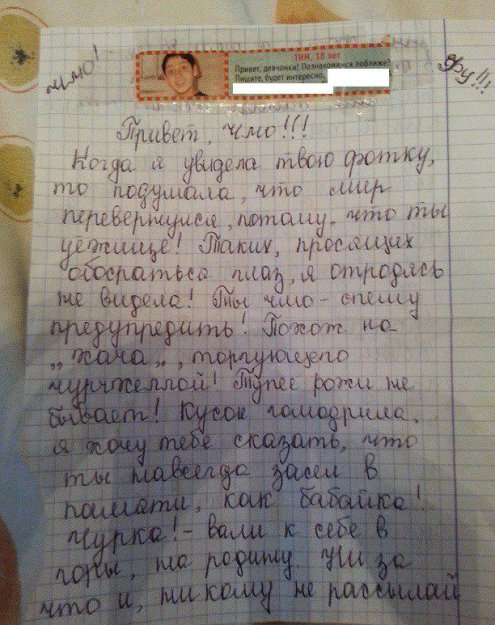 чмо!
ТИМ, 18 лет
Привет, девчонки! Познакомимся поближе?
Пишите, будет интересно.
Фу!!!
Привет, чмо!!!
Когда я увидела твою фотку,
то подумала, что мир
перевернулся, потому, что ты
уёжище! Таких, просящих
обосраться глаз, я отродясь
не видела! Ты чмо - спешу
предупредить! Похож на
„хача„, торгующего
чурчхеллой! Тупее рожи не
бывает! Кусок гомодрила,
я хочу тебе сказать, что
ты навсегда засел в
памяти, как бабайка!
Чурка! - вали к себе в
горы, на родину. Ни за
что и, никому не рассылай